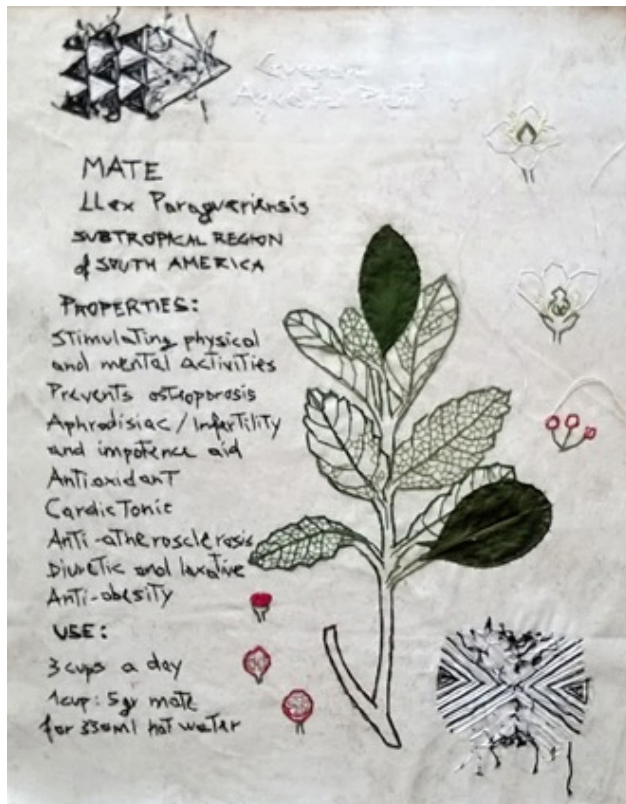 MATE
LLex Paragueriensis
SUBTROPICAL REGION
of SOUTH AMERICA
PROPERTIES:
Stimulating physical
and mental activities
Prevents osteoporosis
Aphrodisiac / Infertility
and impotence aid
Antioxidant
CardicTonic
Anti-atherosclerosis
Diuretic and laxative
Anti-obesity
USE:
3 cups a day
1cup: 5gr mate
for 330ml hot water